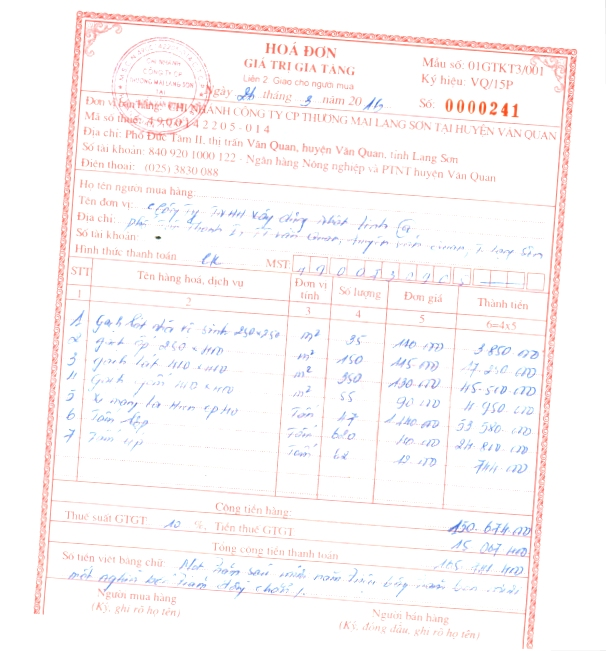 HOÁ ĐƠN
GIÁ TRỊ GIA TĂNG
Liên 2: Giao cho người mua
Mẫu số: 01GTKT3/001
Ký hiệu: VQ/15P
Số: 0000241
CHI NHÁNH
CÔNG TY CP
THƯƠNG MẠI LẠNG SƠN
TẠI
Ngày 26 tháng 3 năm 2016
Đơn vị bán hàng: CHI NHÁNH CÔNG TY CP THƯƠNG MẠI LẠNG SƠN TẠI HUYỆN VĂN QUAN
Mã số thuế: 4900142205-014
Địa chỉ: Phố Đức Tâm II, thị trấn Văn Quan, huyện Văn Quan, tỉnh Lạng Sơn
Số tài khoản: 840 920 1000 122 - Ngân hàng Nông nghiệp và PTNT huyện Văn Quan
Điện thoại: (025) 3830 088
Họ tên người mua hàng:
Tên đơn vị: Công ty TNHH xây dựng
Địa chỉ: TT Văn Quan, huyện Văn Quan, T. Lạng Sơn
Số tài khoản:
Hình thức thanh toán CK MST
STT Tên hàng hoá, dịch vụ Đơn vị tính Số lượng Đơn giá Thành tiền
1 2 3 4 5 6=4x5
1 Gạch 250×250 m² 35 110.000 3.850.000
2 gạch ốp 250×400 m² 150 115.000 17.250.000
3 gạch lát 400×400 m² 350 130.000 45.500.000
4 Gạch 400×400 m² 55 90.000 4.950.000
5 Xi măng Tấn 47 1.140.000 53.580.000
6 Tấm lợp Tấm 620 40.000 24.800.000
7 Tấm 62 12.000 744.000
Cộng tiền hàng: 150.674.000
Thuế suất GTGT 10 %, Tiền thuế GTGT 15.067.400
Tổng cộng tiền thanh toán 165.741.400
Số tiền viết bằng chữ: Một trăm sáu mươi năm triệu bảy trăm bốn mươi
một nghìn bốn trăm đồng chẵn
Người mua hàng Người bán hàng
(Ký, ghi rõ họ tên) (Ký, đóng dấu, ghi rõ họ tên)